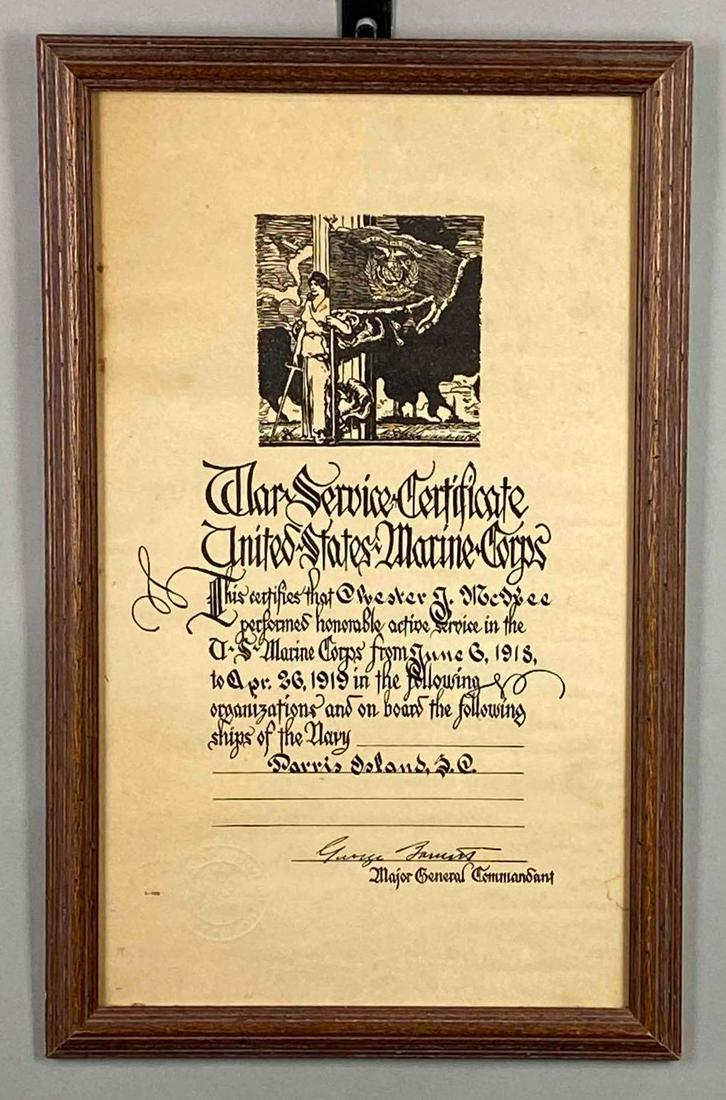 War Service Certificate
United States Marine Corps
This certifies that Chester J. McAbee
performed honorable active service in the
U·S·Marine Corps from June 6, 1918,
to Apr. 26, 1919 in the following
organizations and on board the following
ships of the Navy
Parris Island, S.C.
George Barnett
Major General Commandant